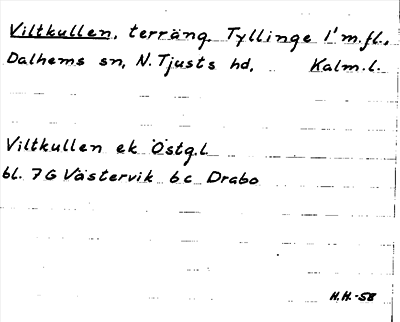 Viltkullen, terräng, Tyllinge 1' m.fl.,
Dalhems sn, N. Tjusts hd, Kalm.l.
Viltkullen ek Östg.l
bl. 7G Västervik 6c Drabo
H.H.-58